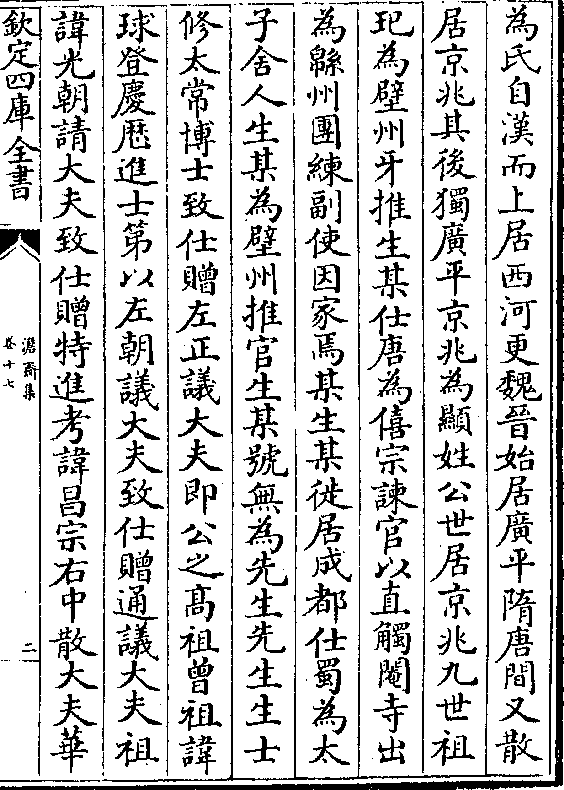 為氏自漢而上居西河更魏晉始居廣平隋唐間又散
居京兆其後獨廣平京兆為顯姓公世居京兆九世祖
玘為壁州牙推生某仕唐為僖宗諫官以直觸閹寺出
為緜州團練副使因家焉某生某徙居成都仕蜀為太
子舍人生某為壁州推官生某號無為先生先生生士
修太常博士致仕贈左正議大夫即公之髙祖曾祖諱
球登慶厯進士第以左朝議大夫致仕贈通議大夫祖
諱光朝請大夫致仕贈特進考諱昌宗右中散大夫華
欽定四庫全書
澹齋集
卷十七
二